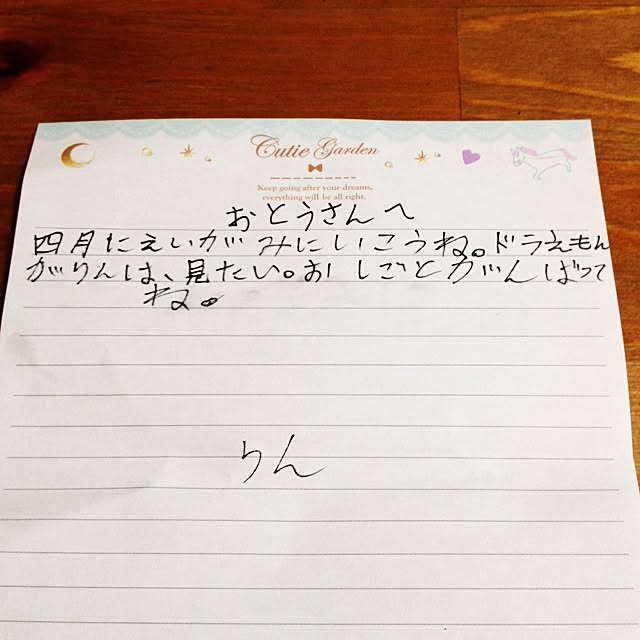 Cutie Garden
Keep going after your dreams,
everything will be all right.
おとうさんへ
四月にえいがみにいこうね。ドラえもん
がりんは、見たい。おしごとがんばって
ね。
りん